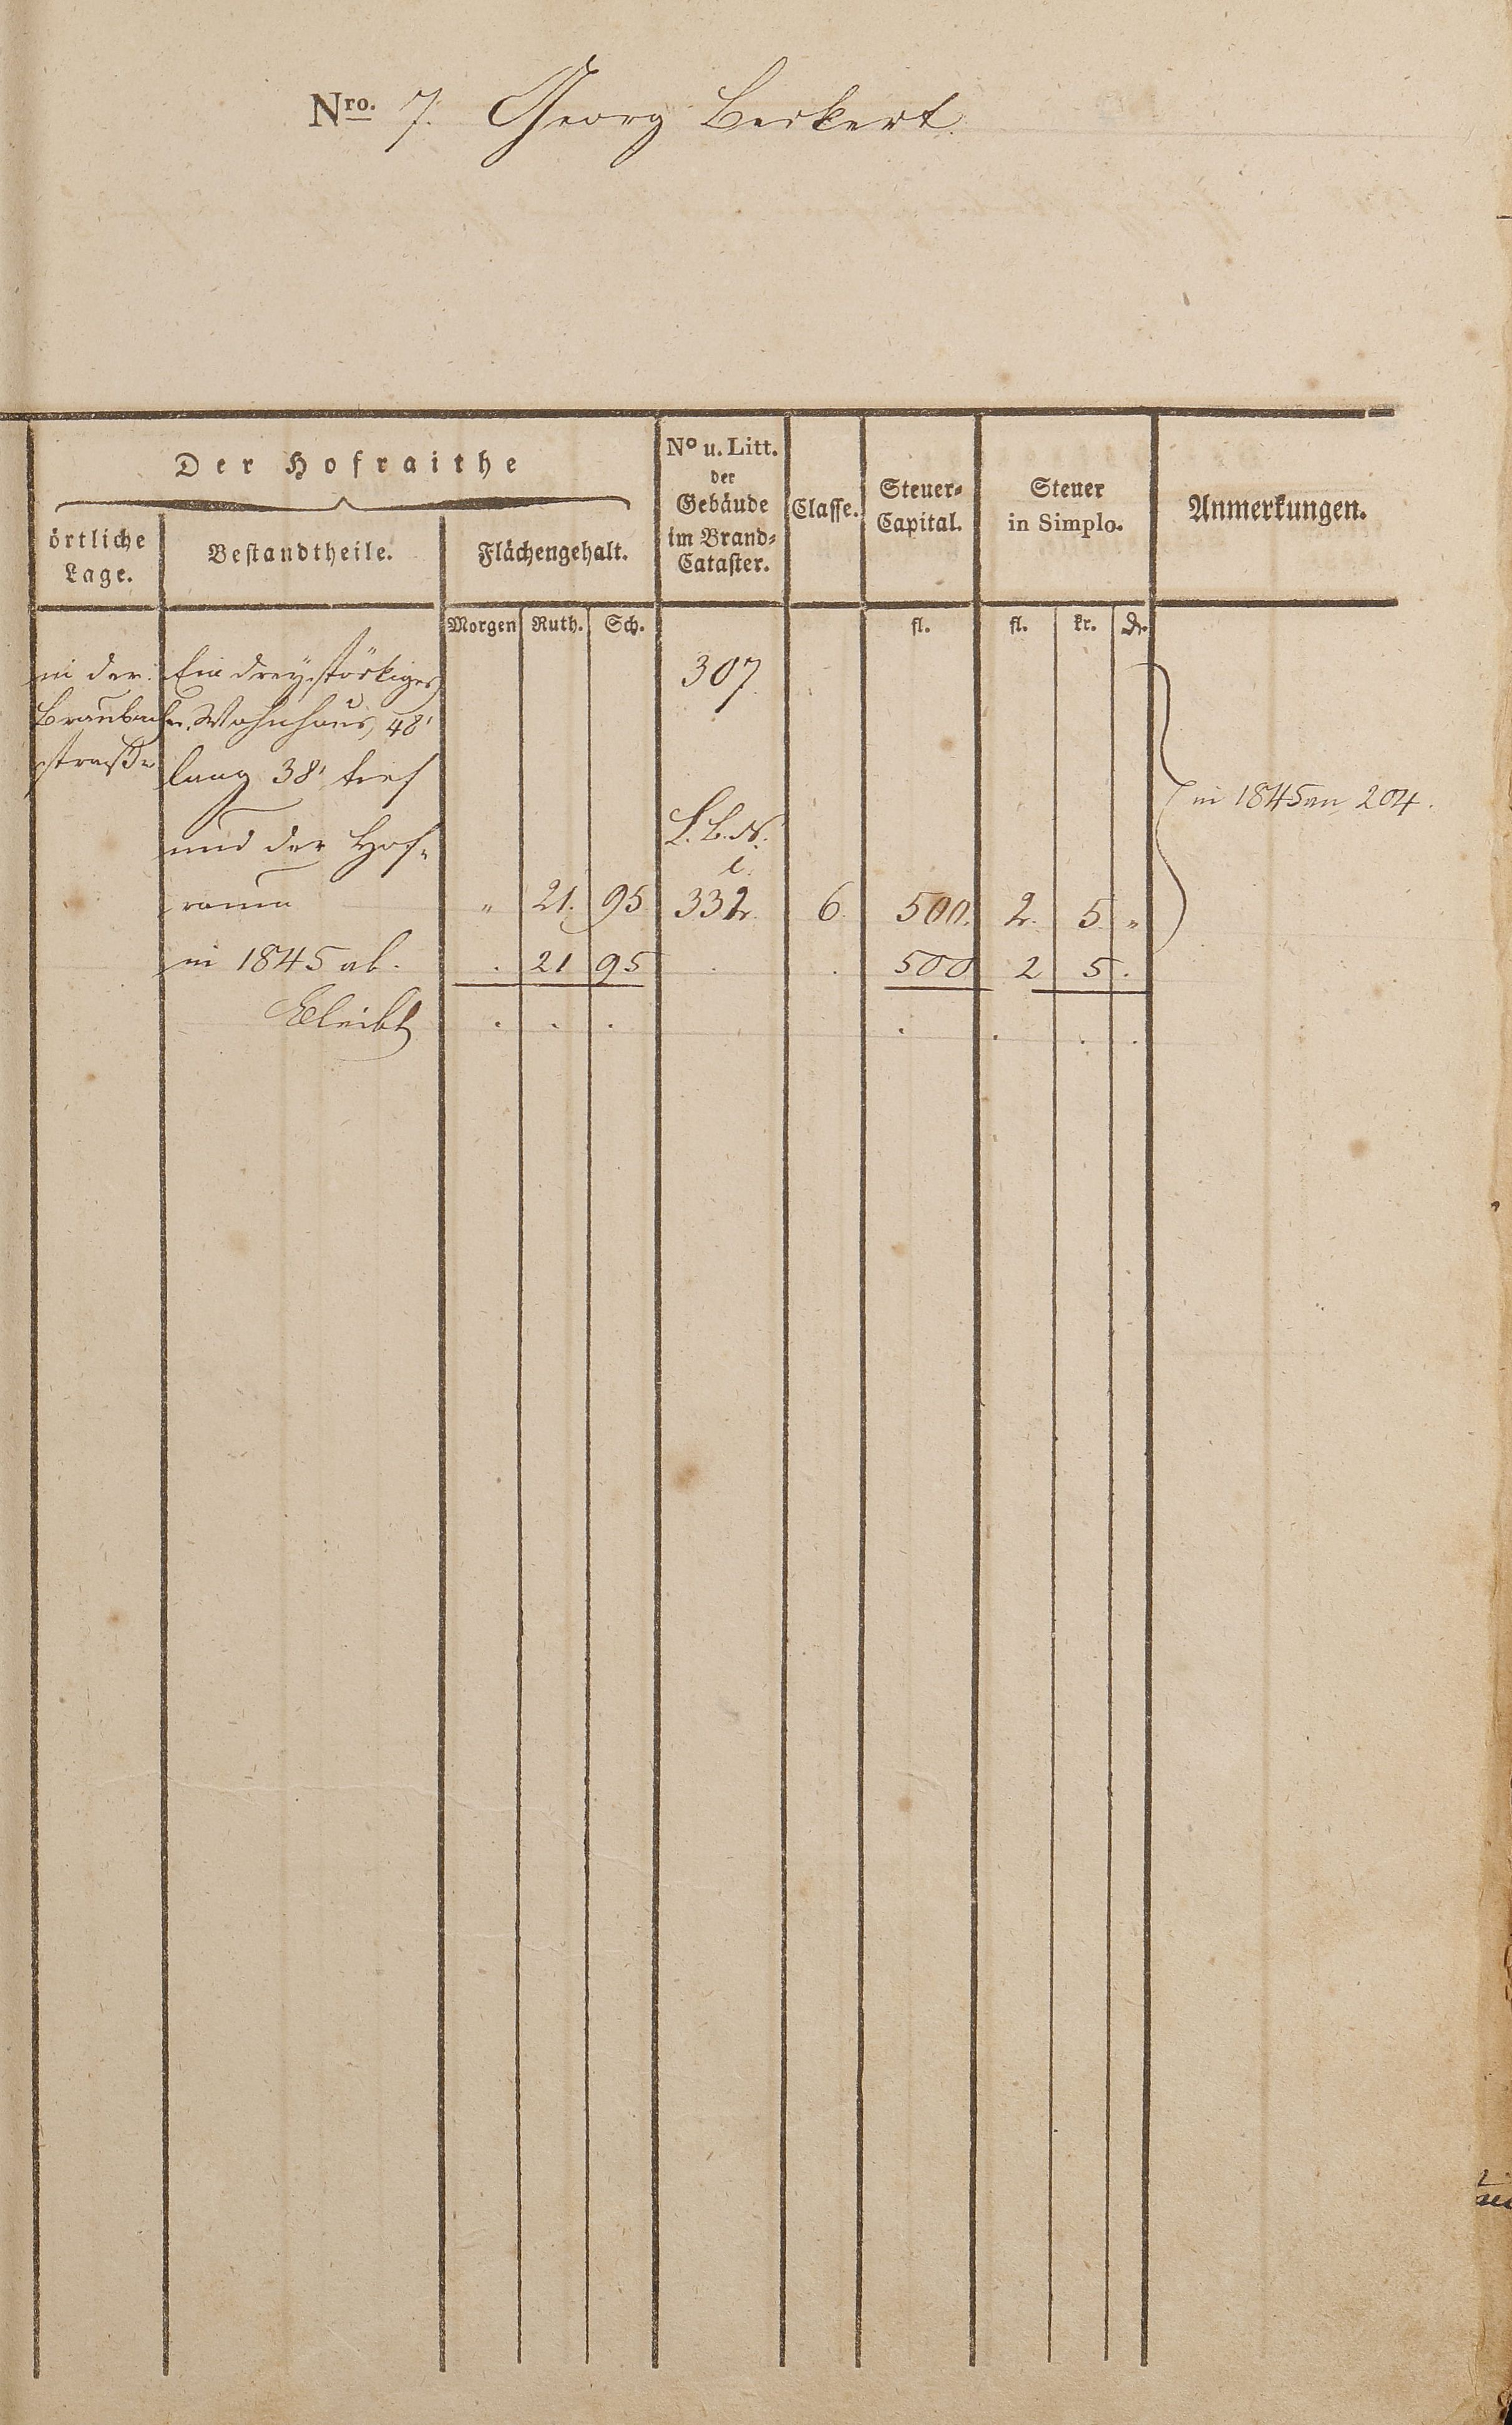 Nro. 7. Georg Beckert.
Der Hofraithe
örtliche Lage.
Bestandtheile.
Flächengehalt.
No u. Litt. der Gebäude im Brand-Cataster.
Classe.
Steuer-Capital.
Steuer in Simplo.
Anmerkungen.
Morgen Ruth. Sch. fl. fl. kr. Dr.
in der Ein dreystöckiges 307.
Braubacher Wohnhaus, 48'
straße lang 38' tief
in 1845 an 204.
und der Hof- L. B. N.
raum " 21. 95 332 6. 500. 2. 5. "
in 1845 ab. . 21 95 . . 500 2 5 .
Bleibt . . . . . . .